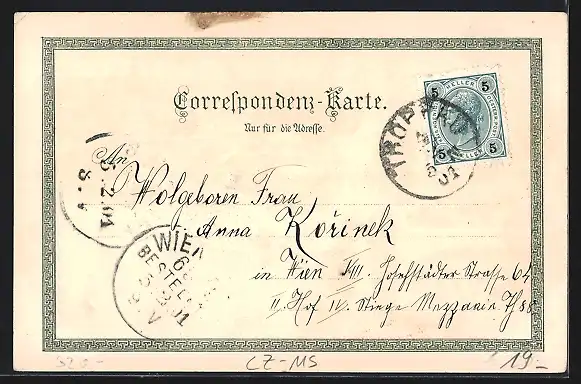 Correspondenz-Karte.
Nur für die Adresse.
5 HELLER 5
5 HELLER 5
TROPPAU
An
Wolgeboren Frau
Anna Kořinek
in Wien VIII. Josefstädter Strasse 64
II. Hof IV. Stiege Mezzanin Th 88
5.2.01
8.V
WIEN
BESTELLT
CZ-MS
19-